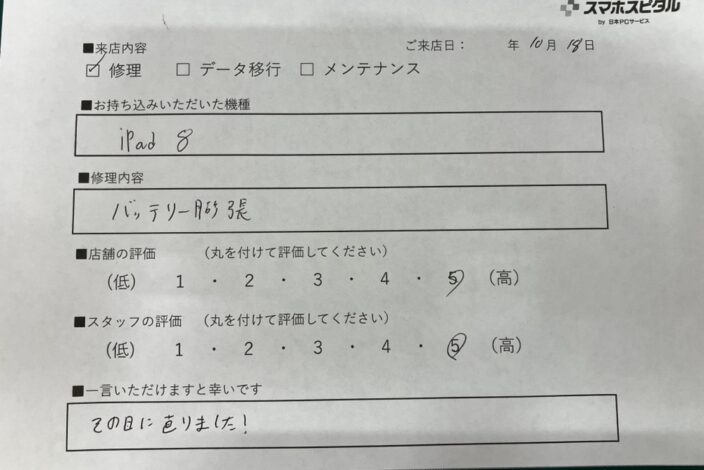 スマホスピタル
by 日本PCサービス
■来店内容
ご来店日： 年 10月 18日
☑ 修理 □ データ移行 □ メンテナンス
■お持ち込みいただいた機種
iPad 8
■修理内容
バッテリー膨張
■店舗の評価 （丸を付けて評価してください）
（低） 1 ・ 2 ・ 3 ・ 4 ・ 5 （高）
■スタッフの評価 （丸を付けて評価してください）
（低） 1 ・ 2 ・ 3 ・ 4 ・ 5 （高）
■一言いただけますと幸いです
その日に直りました！